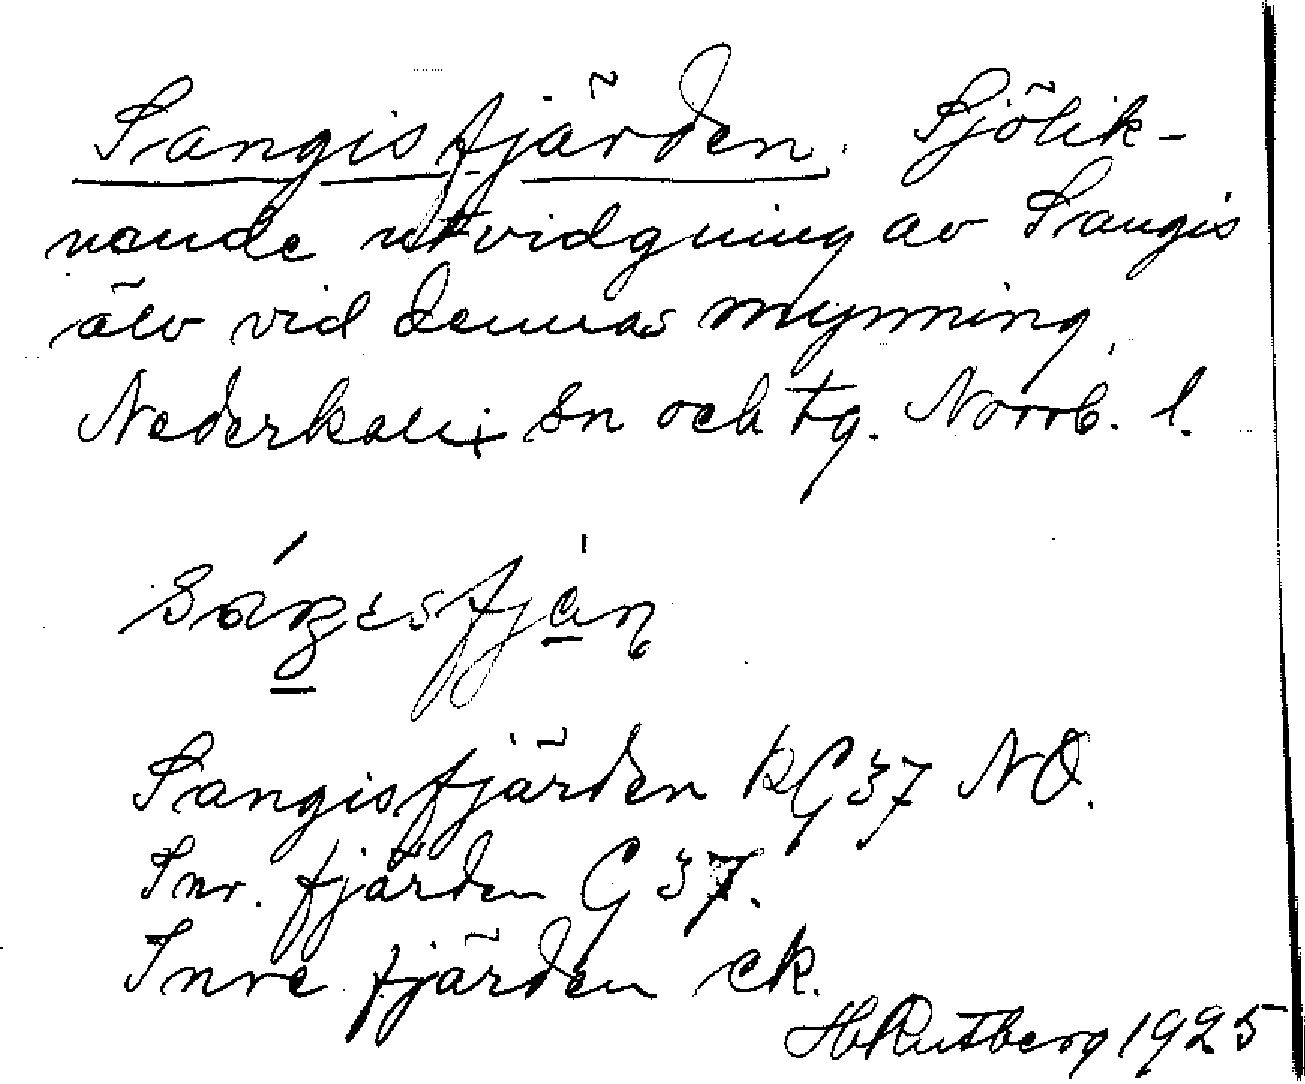 Sangisfjärden. Sjölik-
nande utvidgning av Sangis
älv vid dennas mynning,
Nederkalix sn och tg. Norrb. l.
Sangisfjärden RG37 NO.
Inr. fjärden G37.
Inre fjärden ek.
H Rutberg 1925